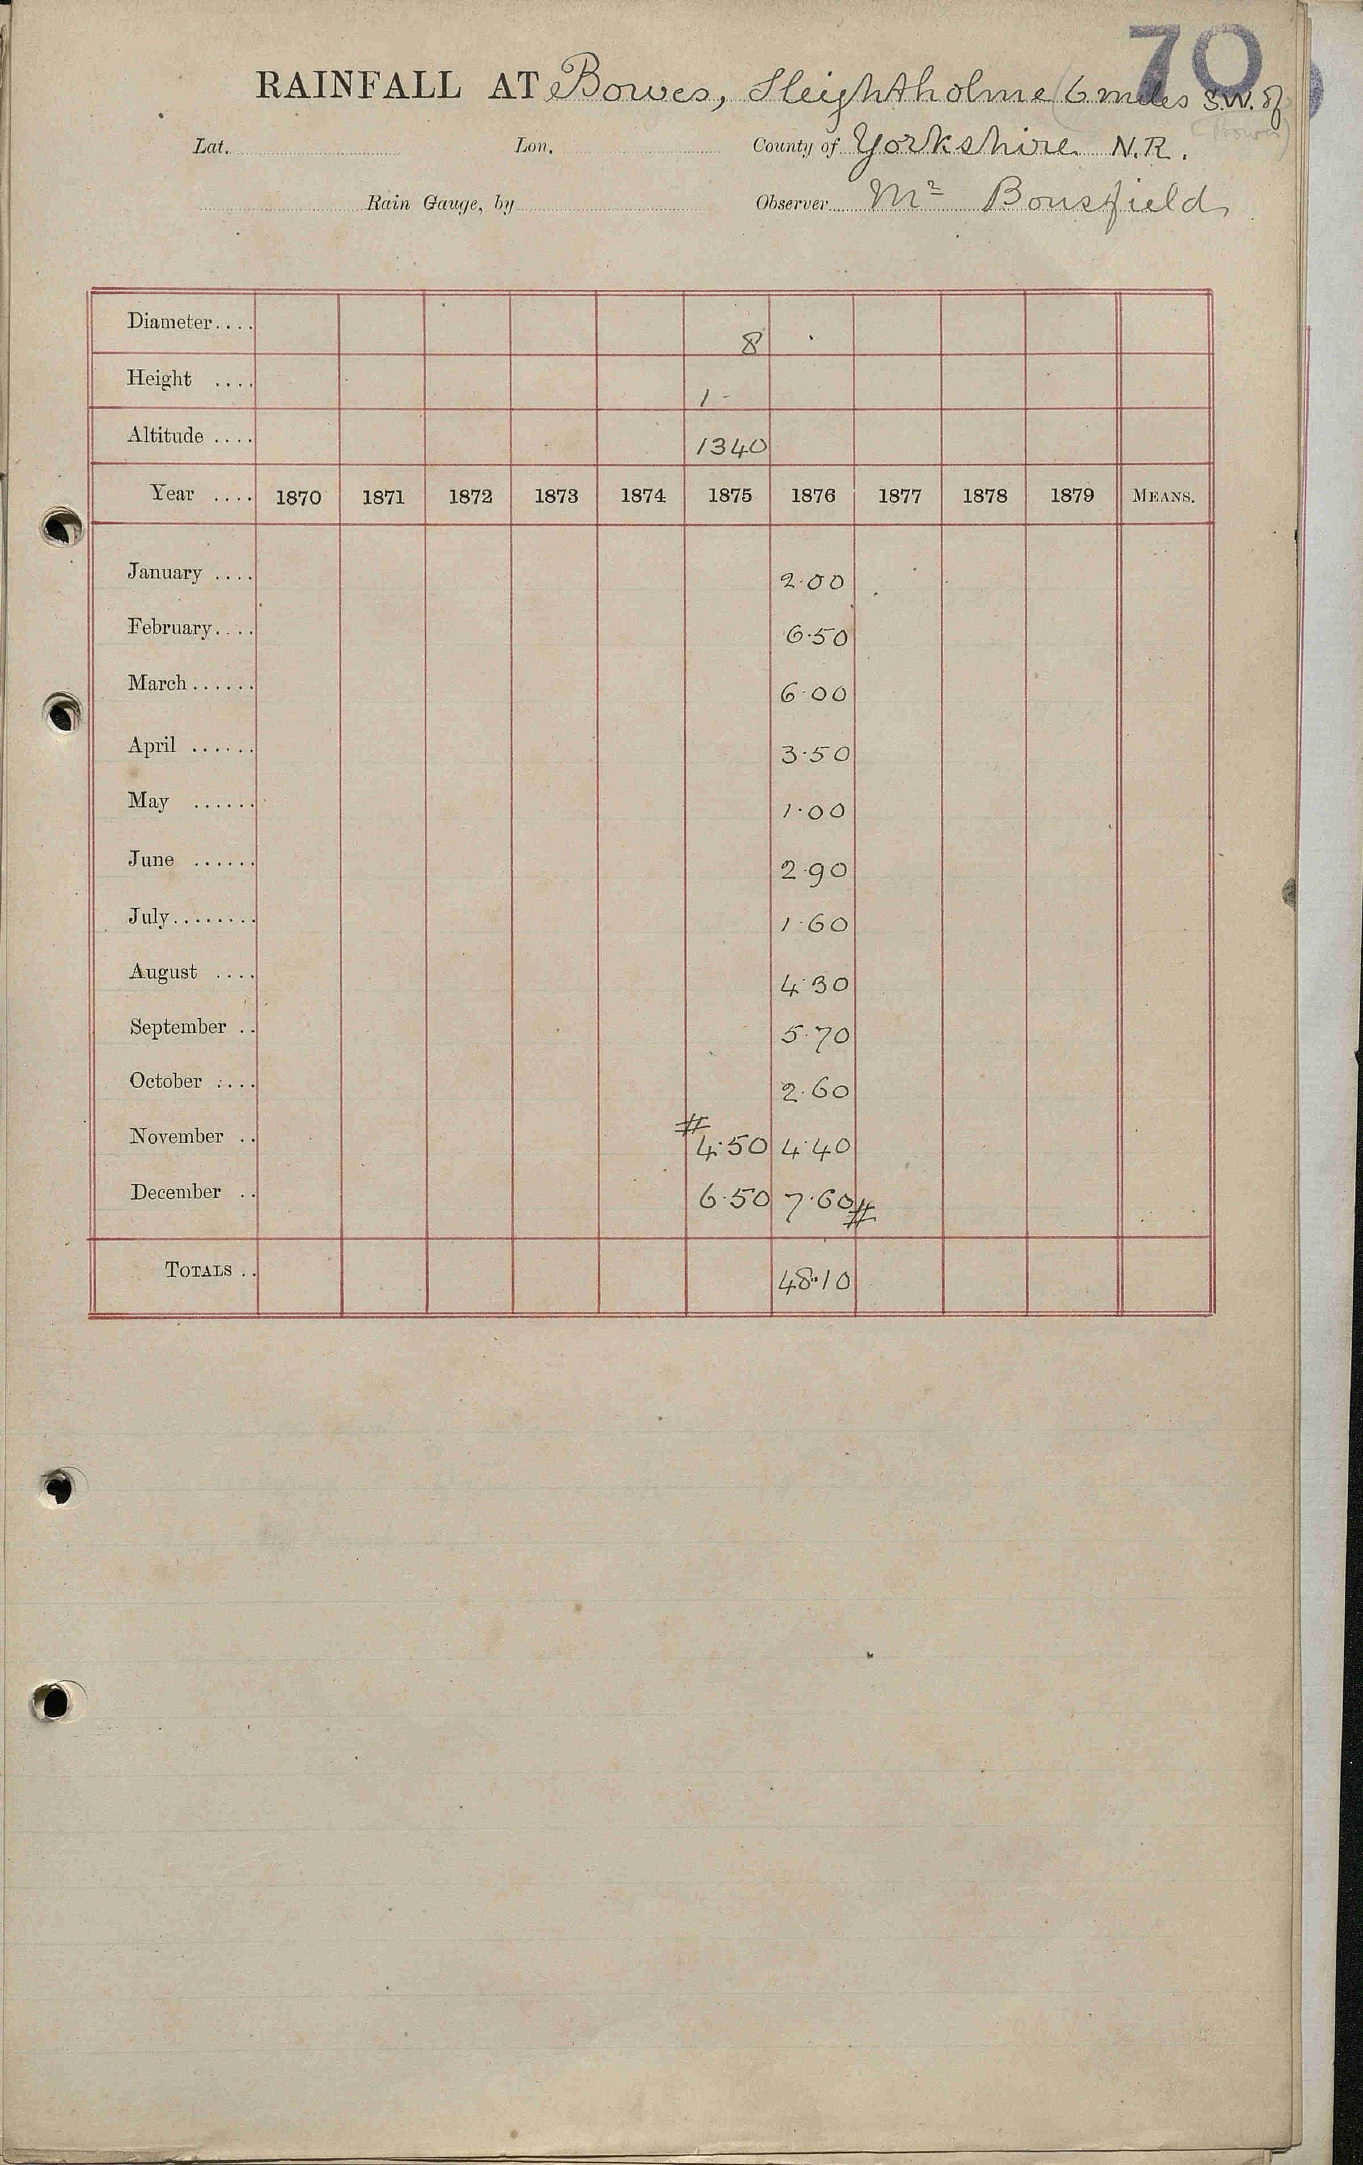 70
RAINFALL AT Bowes, Sleightholme (6 miles S.W. of
(Bowes)
Lat. Lon. County of Yorkshire N.R.
Rain Gauge, by Observer Mr Bousfield
Diameter.... 8
Height .... 1 -
Altitude .... 1340
Year .... 1870 1871 1872 1873 1874 1875 1876 1877 1878 1879 MEANS.
January .... 2.00
February.... 6.50
March...... 6.00
April ...... 3.50
May ...... 1.00
June ...... 2.90
July........ 1.60
August .... 4.30
September .. 5.70
October .... 2.60
November .. #4.50 4.40
December .. 6.50 7.60#
TOTALS .. 48.10